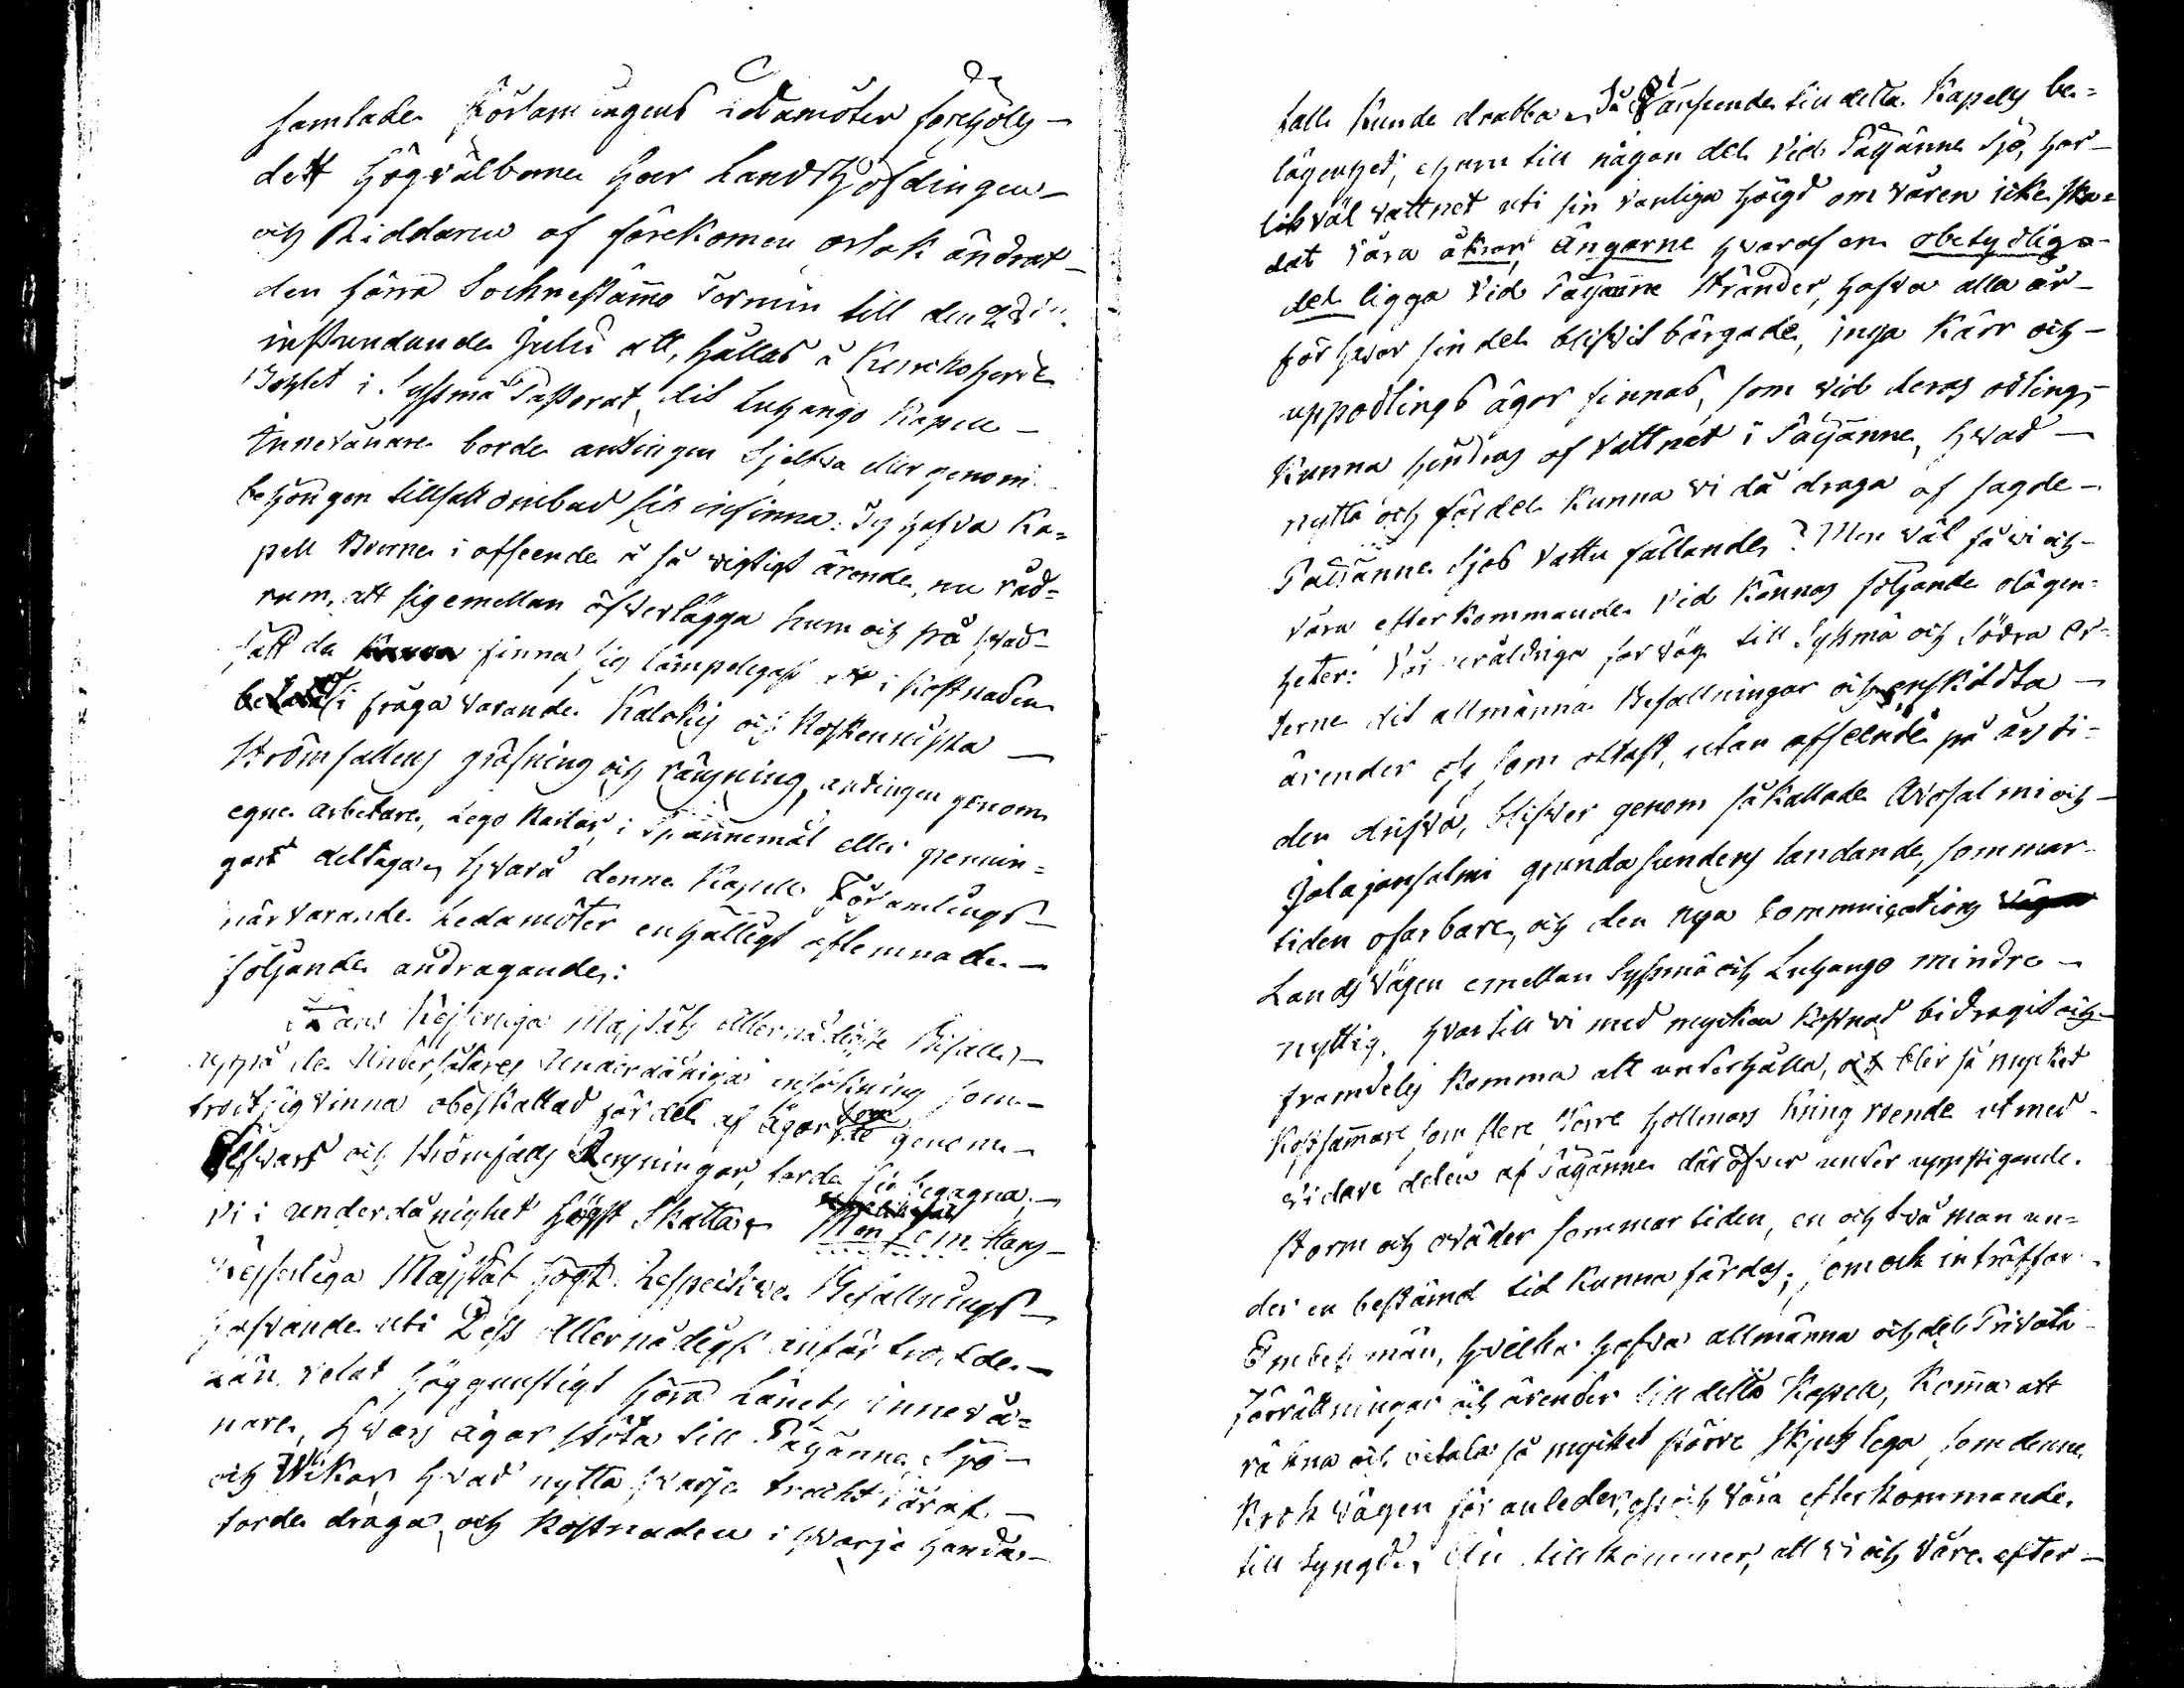 samlade Församlingens Ledamöter förehölls
dett Högvälborne Herr Landshöfdingen
och Riddaren af förekomen orsak ändrat
den förra Sockneståmo Termin till den 28de
instundande Julii att, hållas å Kyrkoherde
Bohlet i Sysmä Pastorat, dit Luhango Kapell
Innevånare borde antingen Sjelfva eller genom
behörigen tillsatt ombud sig infinna. Och hafva Ka=
pell Boerne i afseende å så vigtigt ärende, nu råd=
rum, att sig emellan öfverlägga huru och på hvad
sätt de finna sig lämpeligast i kostnaden
i fråga varande Kalkis och Koskenniska
Strömfallens gräfning och rensning, antingen genom
egne arbetare, Lego Karlar, i Spannemål eller penning=
gart deltaga, hvarå denne Kapell Församlings
närvarande Ledamöter enhälligt aflemnade
följande andragande:
Hans Kejserliga Majestäts Allernådigste Bifall
uppå de Undersåtares Underdåniga ansökning som
trott sig vinna obeskattad fördel af ägor som genom
Elfvars och Strömfalls Rensningar, torde sig begagna,
vi i underdånighet högst Skatta. Men som Hans
Kejserliga Majestät högt Respective Befallnings
hafvande uti Dess Allernådigst anförtrodde
Län velat höggunstigt höra Länets innevå=
nare, hvars ägor stöta till Päjänne Sjö
och Wikar, hvad nytta hvarje trackt däraf
torde draga och kostnaden i hvarje hända
falle kunde drabba. Så i anseende till detta Kapells be=
lägenhet, ehuru till någon del vid Päijänne Sjö, har
likväl vattnet uti sin vanliga högd om våren icke ska=
dat våra åkrar, Ängarne hvaraf en obetydlig
del ligga vid Päijänne Stränder, hafva alla år
för hvar sin del blifvit bärgade, inga Kärr och
uppodlings ägor finnas, som vid deras odling
kunna hindras af vattnet i Päijänne, hvad
nytta och fördel kunna vi då draga af sagde
Päijänne Sjös vattu fällande? Men väl få vi och
våra efterkommande vid kännas följande olägen=
heter: Vår uråldriga farväg till Sysmä och Södra Or=
terne dit allmänna Befallningar och enskildta
ärender oss som oftast, utan afseende på årsti=
den drifva, blifver genom så kallade Avosalmi och
Jolajansalmi grunda sunders landande, sommar
tiden ofarbare, och den nya Communications
Lands Vägen emellan Sysmä och Luhango mindre
nyttig, hvartill vi med mycken kostnad bidragit och
framdeles komma att underhålla, och blir så mycket
kostsammare som flere större hollmars kring roende ut med
vidare delen af Päijänne däröfver under uppstigande
storm och oväder sommartiden, en och två man un=
der en bestämd tid kunna färdas; som och inträffar
Embets män, hvilka hafva allmänna och del Privata
förrättningar och ärender till detta Kapell, komma att
räkna och betala så mycket större Skjuts lega, som denne
Krok vägen föranleder, oss och våra efterkommande
till tyngd. Än tillkommer, att vi och våra efter